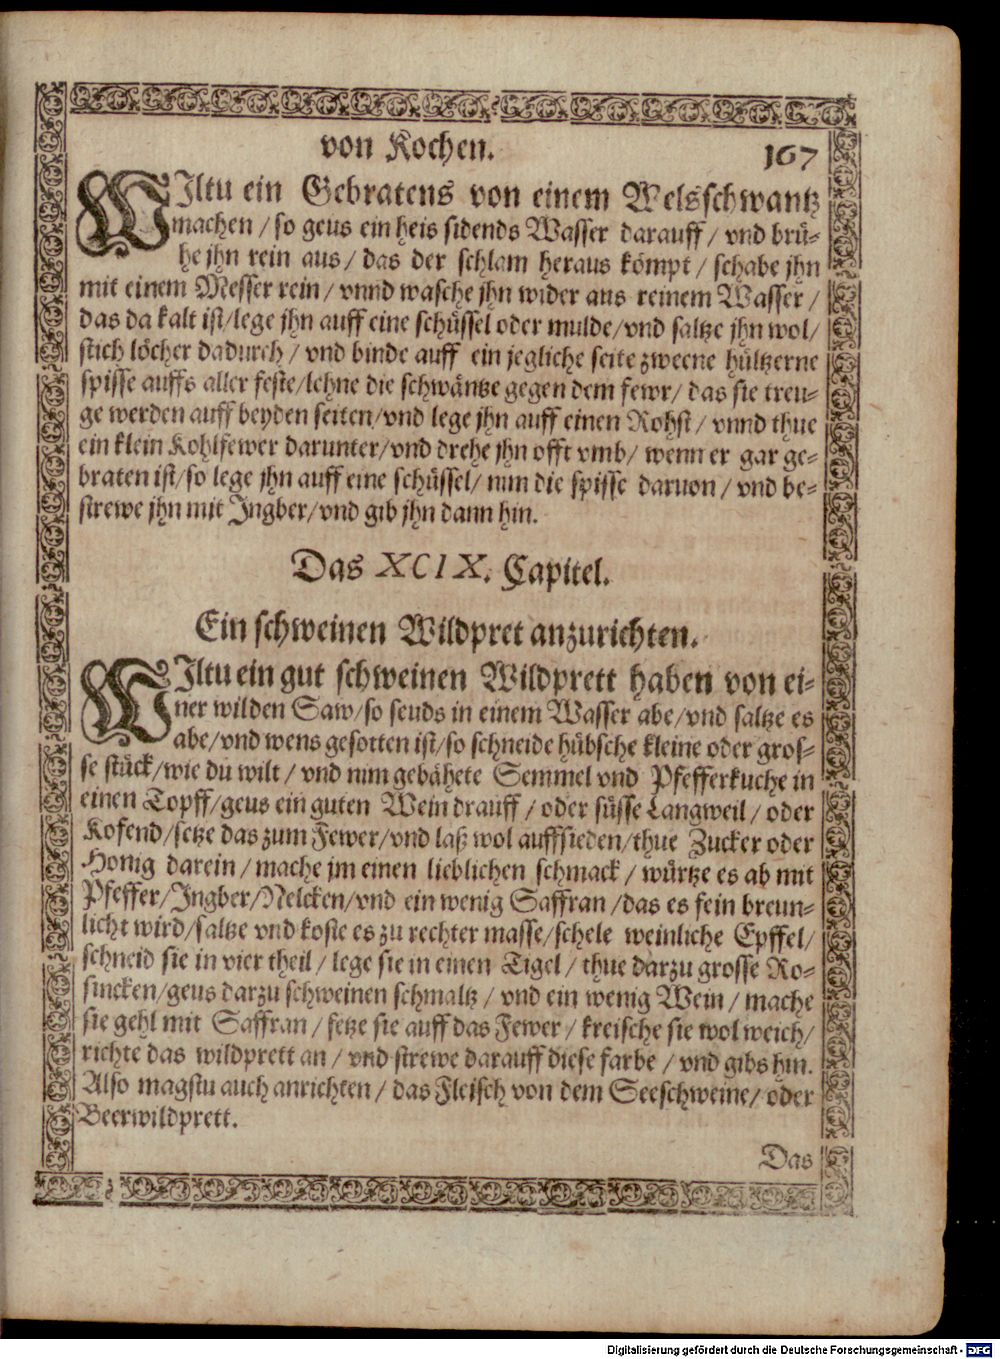 von Kochen. 167
WIltu ein Gebratens von einem Welsschwantz
machen / so geus ein heis sidends Wasser darauff / vnd brü-
he jhn rein aus / das der schlam heraus kömpt / schabe jhn
mit einem Messer rein / vnnd wasche jhn wider aus reinem Wasser /
das da kalt ist / lege jhn auff eine schüssel oder mulde / vnd saltze jhn wol /
stich löcher dadurch / vnd binde auff ein jegliche seite zweene hültzerne
spisse auffs aller feste / lehne die schwäntze gegen dem fewr / das sie treu-
ge werden auff beyden seiten / vnd lege jhn auff einen Rohst / vnnd thue
ein klein Kohlfewer darunter / vnd drehe jhn offt vmb / wenn er gar ge-
braten ist / so lege jhn auff eine schüssel / nim die spisse daruon / vnd be-
strewe jhn mit Ingber / vnd gib jhn dann hin.
Das XCIX. Capitel.
Ein schweinen Wildpret anzurichten.
WIltu ein gut schweinen Wildprett haben von ei-
ner wilden Saw / so seuds in einem Wasser abe / vnd saltze es
abe / vnd wens gesotten ist / so schneide hübsche kleine oder gros-
se stück / wie du wilt / vnd nim gebähete Semmel vnd Pfefferkuche in
einen Topff / geus ein guten Wein drauff / oder süsse Langweil / oder
Kofend / setze das zum Fewer / vnd laß wol auffsieden / thue Zucker oder
Honig darein / mache jm einen lieblichen schmack / würtze es ab mit
Pfeffer / Ingber / Nelcken / vnd ein wenig Saffran / das es fein breun-
licht wird / saltze vnd koste es zu rechter masse / schele weinliche Epffel /
schneid sie in vier theil / lege sie in einen Tigel / thue darzu grosse Ro-
sincken / geus darzu schweinen schmaltz / vnd ein wenig Wein / mache
sie gehl mit Saffran / setze sie auff das Fewer / kreische sie wol weich /
richte das wildprett an / vnd strewe darauff diese farbe / vnd gibs hin.
Also magstu auch anrichten / das Fleisch von dem Seeschweine / oder
Beerwildprett.
Das
Digitalisierung gefördert durch die Deutsche Forschungsgemeinschaft - DFG